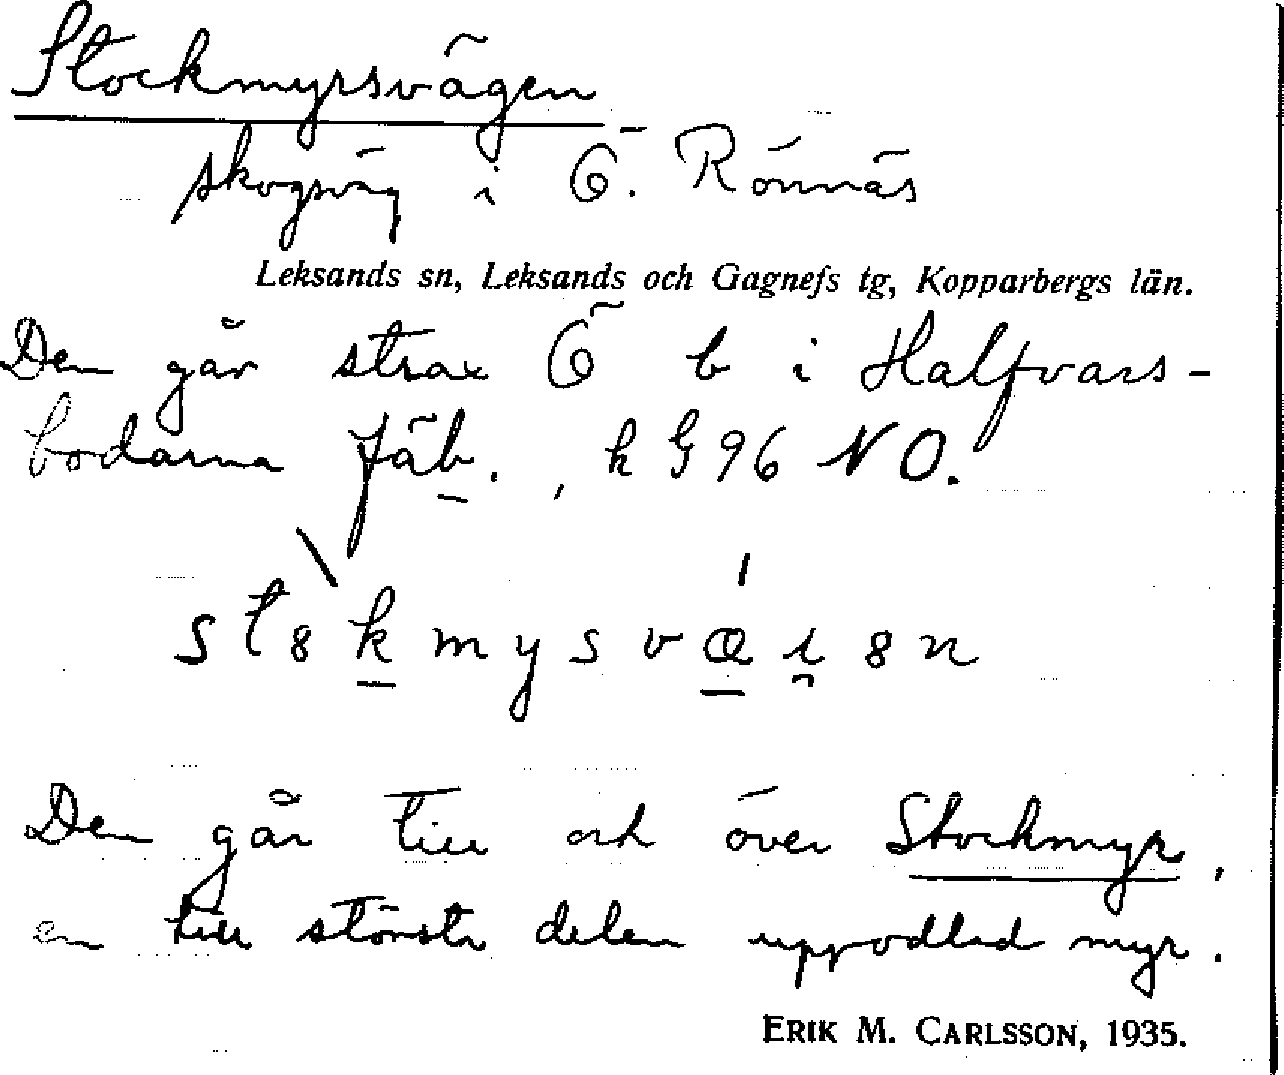 Stockmyrsvägen
skogsväg i Ö. Rönnäs
Leksands sn, Leksands och Gagnefs tg, Kopparbergs län.
Den går strax Ö b i Halfvars-
bodarna fäb., k G 96 NO.
st8kmysvæi8n
Den går till och över Stockmyr,
en till största delen uppodlad myr.
ERIK M. CARLSSON, 1935.